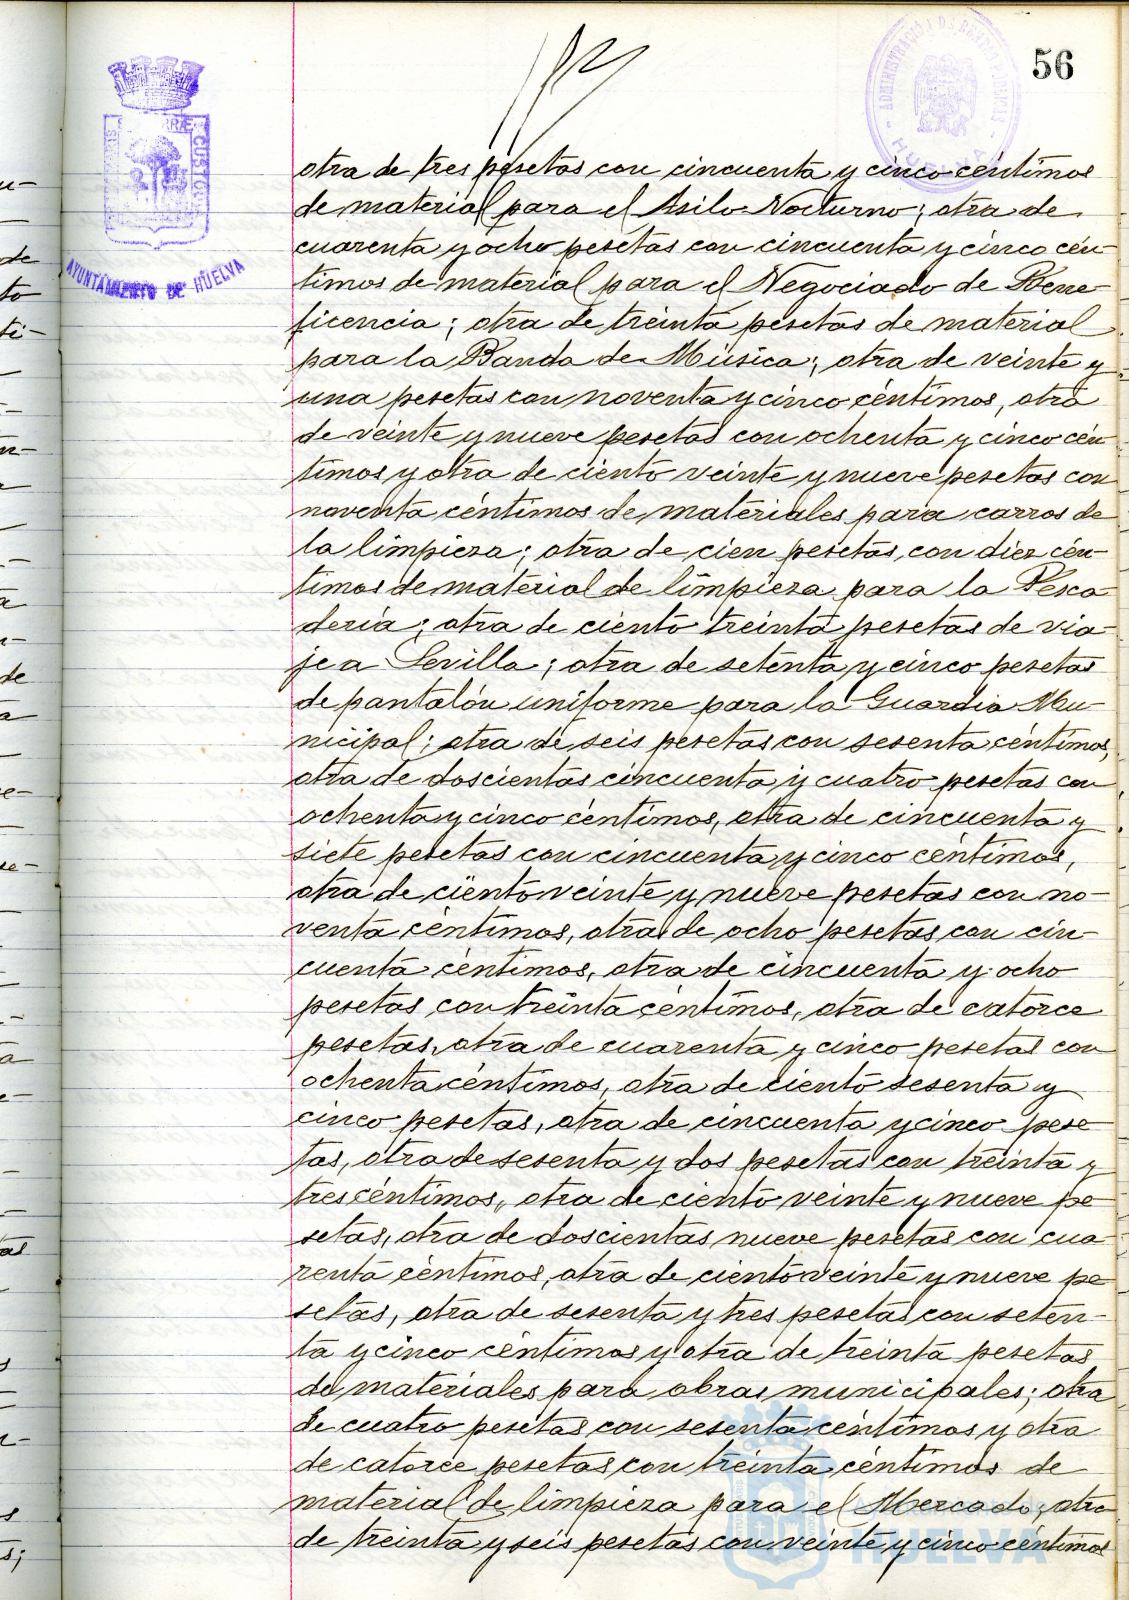 56
ADMINISTRACIÓN DE RENTAS PÚBLICAS
HUELVA
CUSTODIA
AYUNTAMIENTO DE HUELVA
otra de tres pesetas con cincuenta y cinco céntimos
de material para el Asilo Nocturno; otra de
cuarenta y ocho pesetas con cincuenta y cinco cén-
timos de material para el Negociado de Bene-
ficencia; otra de treinta pesetas de material
para la Banda de Música; otra de veinte y
una pesetas con noventa y cinco céntimos, otra
de veinte y nueve pesetas con ochenta y cinco cén-
timos y otra de ciento veinte y nueve pesetas con
noventa céntimos de materiales para carros de
la limpieza; otra de cien pesetas con diez cén-
timos de material de limpieza para la Pesca-
dería; otra de ciento treinta pesetas de via-
je a Sevilla; otra de setenta y cinco pesetas
de pantalón uniforme para la Guardia Mu-
nicipal; otra de seis pesetas con sesenta céntimos,
otra de doscientas cincuenta y cuatro pesetas con
ochenta y cinco céntimos, otra de cincuenta y
siete pesetas con cincuenta y cinco céntimos,
otra de ciento veinte y nueve pesetas con no-
venta céntimos, otras de ocho pesetas con cin-
cuenta céntimos, otra de cincuenta y ocho
pesetas con treinta céntimos, otra de catorce
pesetas, otra de cuarenta y cinco pesetas con
ochenta céntimos, otra de ciento sesenta y
cinco pesetas, otra de cincuenta y cinco pese-
tas, otra de sesenta y dos pesetas con treinta y
tres céntimos, otra de ciento veinte y nueve pe-
setas, otra de doscientas nueve pesetas con cua-
renta céntimos, otra de ciento veinte y nueve pe-
setas, otra de sesenta y tres pesetas con seten-
ta y cinco céntimos y otra de treinta pesetas
de materiales para obras municipales; otra
de cuatro pesetas con sesenta céntimos y otra
de catorce pesetas con treinta céntimos de
material de limpieza para el Mercado, otra
de treinta y seis pesetas con veinte y cinco céntimos
HUELVA